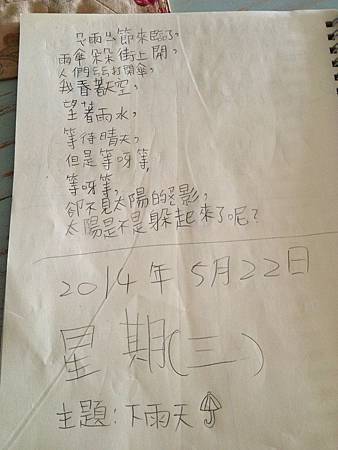 雨出節來臨了,
雨傘朵朵街上開,
人們去去打開傘,
我看著天空,
望著雨水,
等待晴天,
但是等呀等,
等呀等,
卻不見太陽的影,
太陽是不是躲起來了呢?
2014年5月22日
星期(三)
主題:下雨天